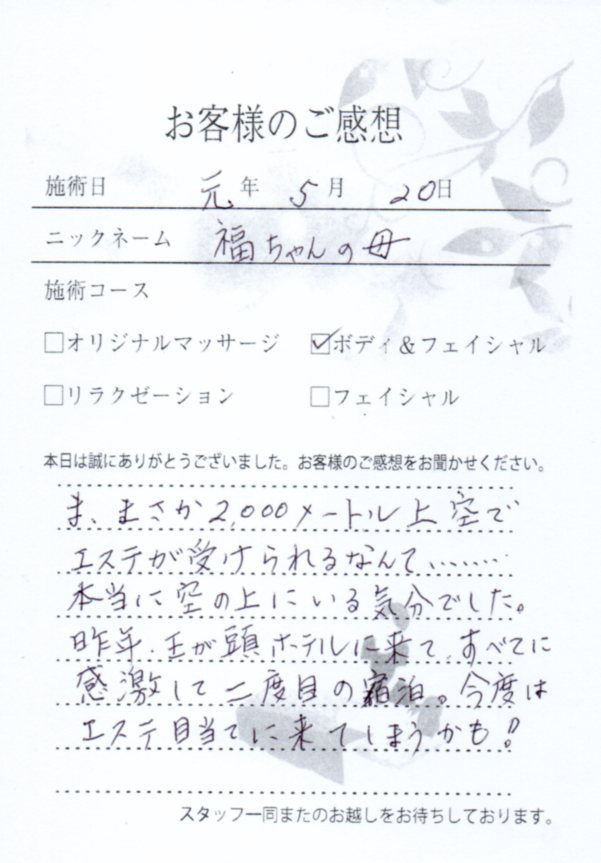 お客様のご感想
施術日 元年 5月 20日
ニックネーム 福ちゃんの母
施術コース
□オリジナルマッサージ ☑ボディ&フェイシャル
□リラクゼーション □フェイシャル
本日は誠にありがとうございました。お客様のご感想をお聞かせください。
ま、まさか2,000メートル上空で
エステが受けられるなんて‥‥‥‥
本当に空の上にいる気分でした。
昨年、王が頭ホテルに来て、すべてに
感激して二度目の宿泊。今度は
エステ目当てに来てしまうかも!!
スタッフ一同またのお越しをお待ちしております。